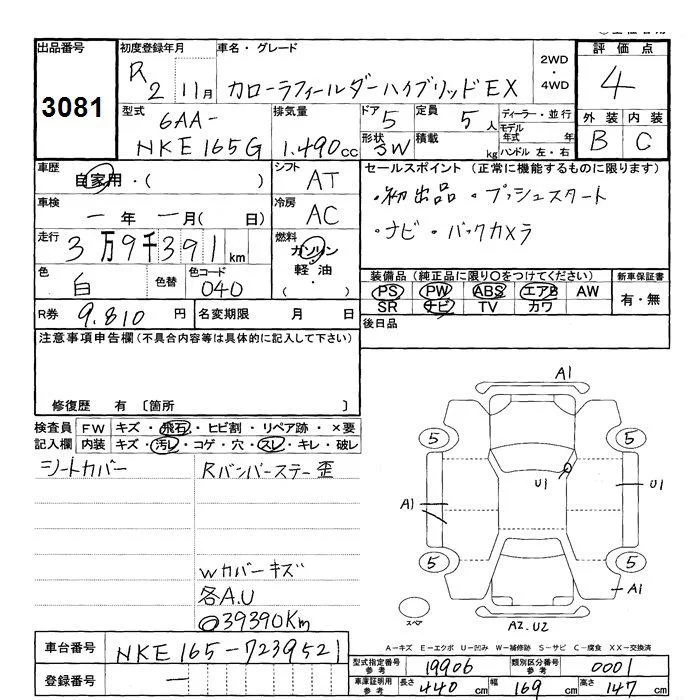 出品番号
3081
初度登録年月
R2 11月
車名・グレード
カローラフィールダーハイブリッドEX
2WD・4WD
評価点
4
外装 内装
B C
型式
6AA-
NKE165G
排気量
1.490cc
ドア 5
形状 SW
定員 5人
積載 kg
ディーラー・並行
モデル年式 年
ハンドル 左・右
車歴
自家用・( )
シフト AT
車検
一年一月( 日)
冷房 AC
走行
3万9千391km
燃料
ガソリン
軽油
・( )
色 白
色替
色コード 040
R券 9.810円
名変期限 月 日
セールスポイント(正常に機能するものに限ります)
・初出品・プッシュスタート
・ナビ・バックカメラ
装備品(純正品に限り○をつけてください)
新車保証書
PS PW ABS エアB AW
SR ナビ TV カワ
有・無
後日品
注意事項申告欄(不具合内容等は具体的に記入して下さい)
修復歴 有〔箇所 〕
検査員記入欄
FW キズ・飛石・ヒビ割・リペア跡・×要
内装 キズ・汚レ・コゲ・穴・スレ・キレ・破レ
シートカバー
Rバンパーステー歪
Wカバーキズ
各A.U
◎39390Km
車台番号
NKE165-7239521
登録番号
一
A1
5 5
U1
U1
A1
5 5
A1
スペア
A2.U2
A－キズ E－エクボ U－凹み W－補修跡 S－サビ C－腐食 XX－交換済
型式指定番号参考 19906
類別区分番号参考 0001
車庫証明用参考 長さ 440cm 幅 169cm 高さ 147cm